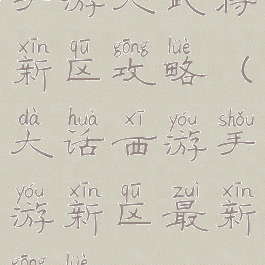 手游大武将
xīn qū gōng lüè
新区攻略（
dà huà xī yóu shǒu
大话西游手
yóu xīn qū zuì xīn
游新区最新
gōng lüè